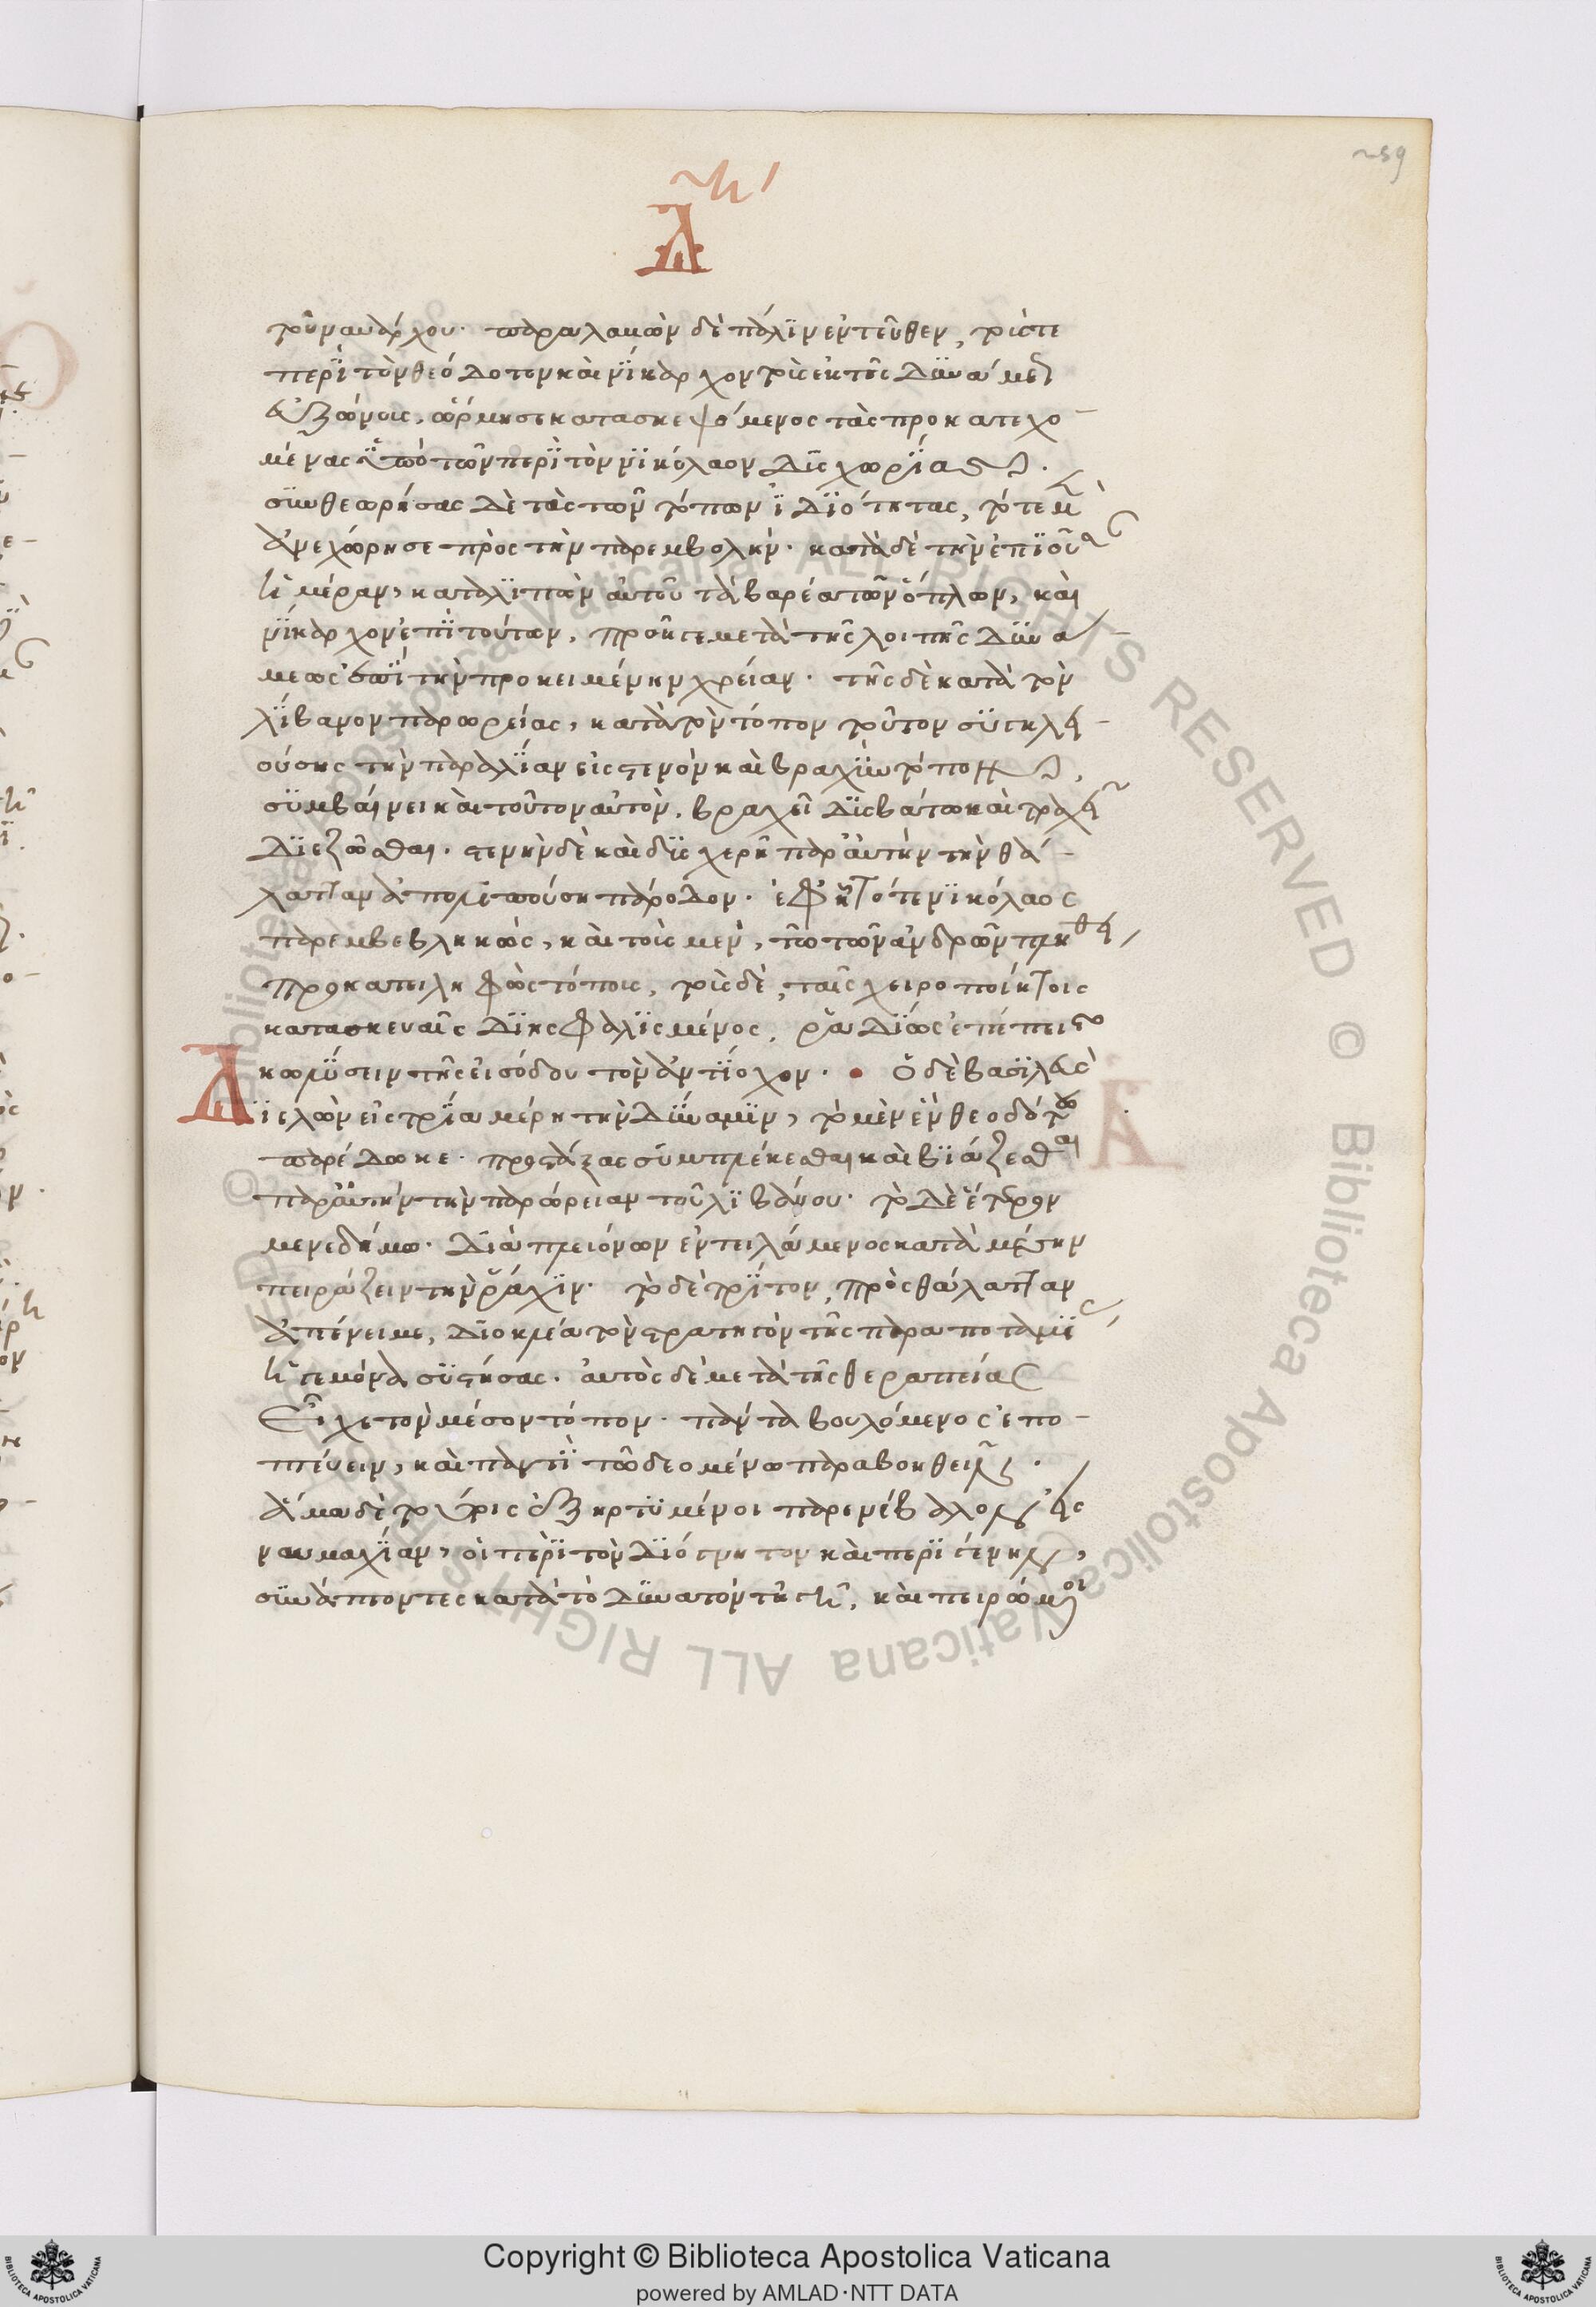 Λ
τοῦ ναυάρχου· παραλαβὼν δὲ πάλϊν ἐντεῦθεν, τοὺς τε
περϊ τὸν θεόδοτον καὶ νίκαρχον τοὺς ἐκ τῆς δυνάμεως
εὐζώνοις, ὥρμησε κατασκεψόμενος τὰς προκατεχο-
μένας ὑπὸ τῶν περὶ τὸν νϊκόλαον δυσχωρίας.
συνθεωρήσας δὲ τὰς τῶν τόπων ἰδϊότητας, τότε μὲν
ἀνεχώρησε πρὸς τὴν παρεμβολήν· κατὰ δὲ τὴν ἐπϊοῦσαν
ἡμέραν, καταλϊπὼν αὐτοῦ τὰ βαρέα τῶν ὅπλων, καὶ
νίκαρχον ἐπὶ τούτων, προῆγε μετὰ τῆς λοιπῆς δυνά-
μεως ἐπὶ τὴν προκειμένην χρείαν· τῆς δὲ κατὰ τὸν
λίβανον παρωρείας, κατὰ τὸν τόπον τοῦτον συγκλει-
ούσης τὴν παραλίαν εἰς στενὸν καὶ βραχὺν τόπον,
συμβαίνει καὶ τοῦτον αὐτὸν, βραχεῖ δϊσβάτω καὶ τραχεῖ
διεζῶσθαι. στενὴν δὲ καὶ δϊσχερῆ παρ' αὐτὴν τὴν θά-
λατταν ἀπολειπούση πάροδον. ἐφ' ἧ τότε νϊκόλαος
παρεμβεβληκὼς, καὶ τοὺς μὲν, τῶ τῶν ἀνδρῶν πλήθει
προκατειληφὼς τόποις, τοὺς δὲ, ταῖς χειροποιήτοις
κατασκευαῖς δϊησφαλϊσμένος, ῥαδίως ἐπέπειστο
κωλύσειν τῆς εἰσόδου τὸν ἀντίοχον. Ὁ δὲ βασϊλεὺς
Δϊελὼν εἰς τρία μέρη τὴν δύναμϊν, τὸ μὲν ἓν θεοδότω
παρέδωκε. προστάξας συμπλέκεσθαι καὶ βϊάζεσθαι
παρ' αὐτὴν τὴν παρώρειαν τοῦ λϊβάνου· τὸ δὲ ἕτερον
μενεδήμω. διὰ πλειόνων ἐντειλάμενος κατὰ μέσην
πειράζειν τὴν ῥάχϊν. τὸ δὲ τρίτον, πρὸς θάλατταν
ἀπένειμε, διοκλέα τὸν στρατηγὸν τῆς παραποταμίας
ἡγεμόνα συστήσας. αὐτὸς δὲ μετὰ τῆς θεραπείας
εἶχε τὸν μέσον τόπον. πάντα βουλόμενος ἐπο-
πτεύειν, καὶ παντὶ τῶ δεομένω παραβοηθεῖν.
ἅμα δὲ τούτοις ἐξηρτυμένοι παρενέβαλον εἰς
ναυμαχίαν, οἱ περὶ τὸν διόγνητον καὶ περιγένην,
συνάπτοντες κατὰ τὸ δυνατὸν τῆ γῆ, καὶ πειρώμενοι
Α
Copyright © Biblioteca Apostolica Vaticana
powered by AMLAD·NTT DATA